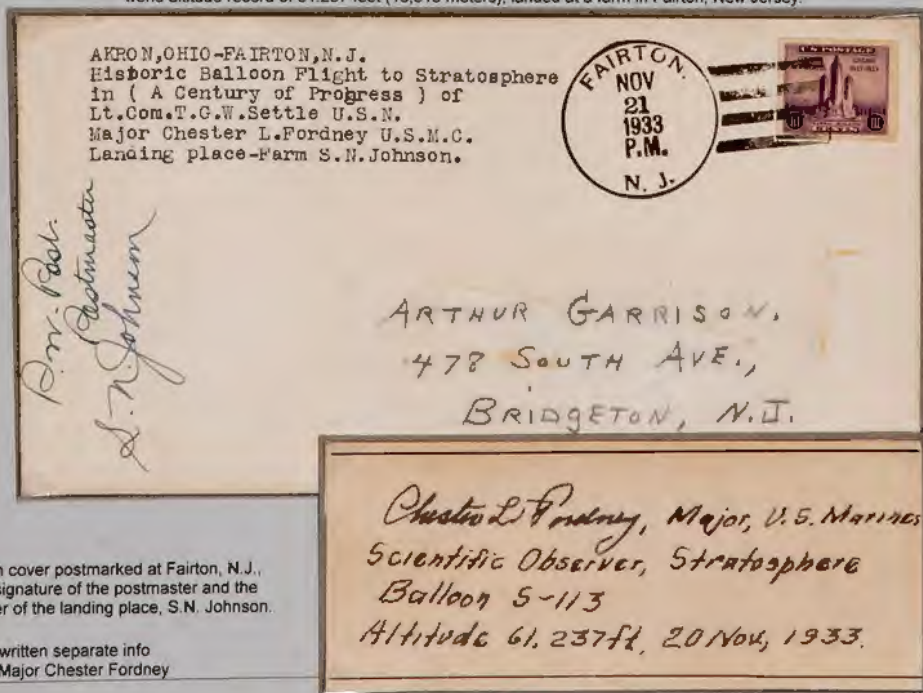 world altitude record of 61.237 feet ( meters), landed at a farm in Fairton, New Jersey.
AKRON,OHIO-FAIRTON,N.J.
Historic Balloon Flight to Stratosphere
in ( A Century of Progress ) of
Lt.Com.T.G.W.Settle U.S.N.
Major Chester L.Fordney U.S.M.C.
Landing place-Farm S.N.Johnson.
FAIRTON.
NOV
21
1933
P.M.
N. J.
U.S. POSTAGE
CENTS
Postmaster
S. N. Johnson
ARTHUR GARRISON.
478 SOUTH AVE.,
BRIDGETON, N.J.
Chester L. Fordney, Major, U.S. Marines
Scientific Observer, Stratosphere
Balloon S-113
Altitude 61.237ft, 20 Nov, 1933.
cover postmarked at Fairton, N.J.,
signature of the postmaster and the
of the landing place, S.N. Johnson.
written separate info
Major Chester Fordney